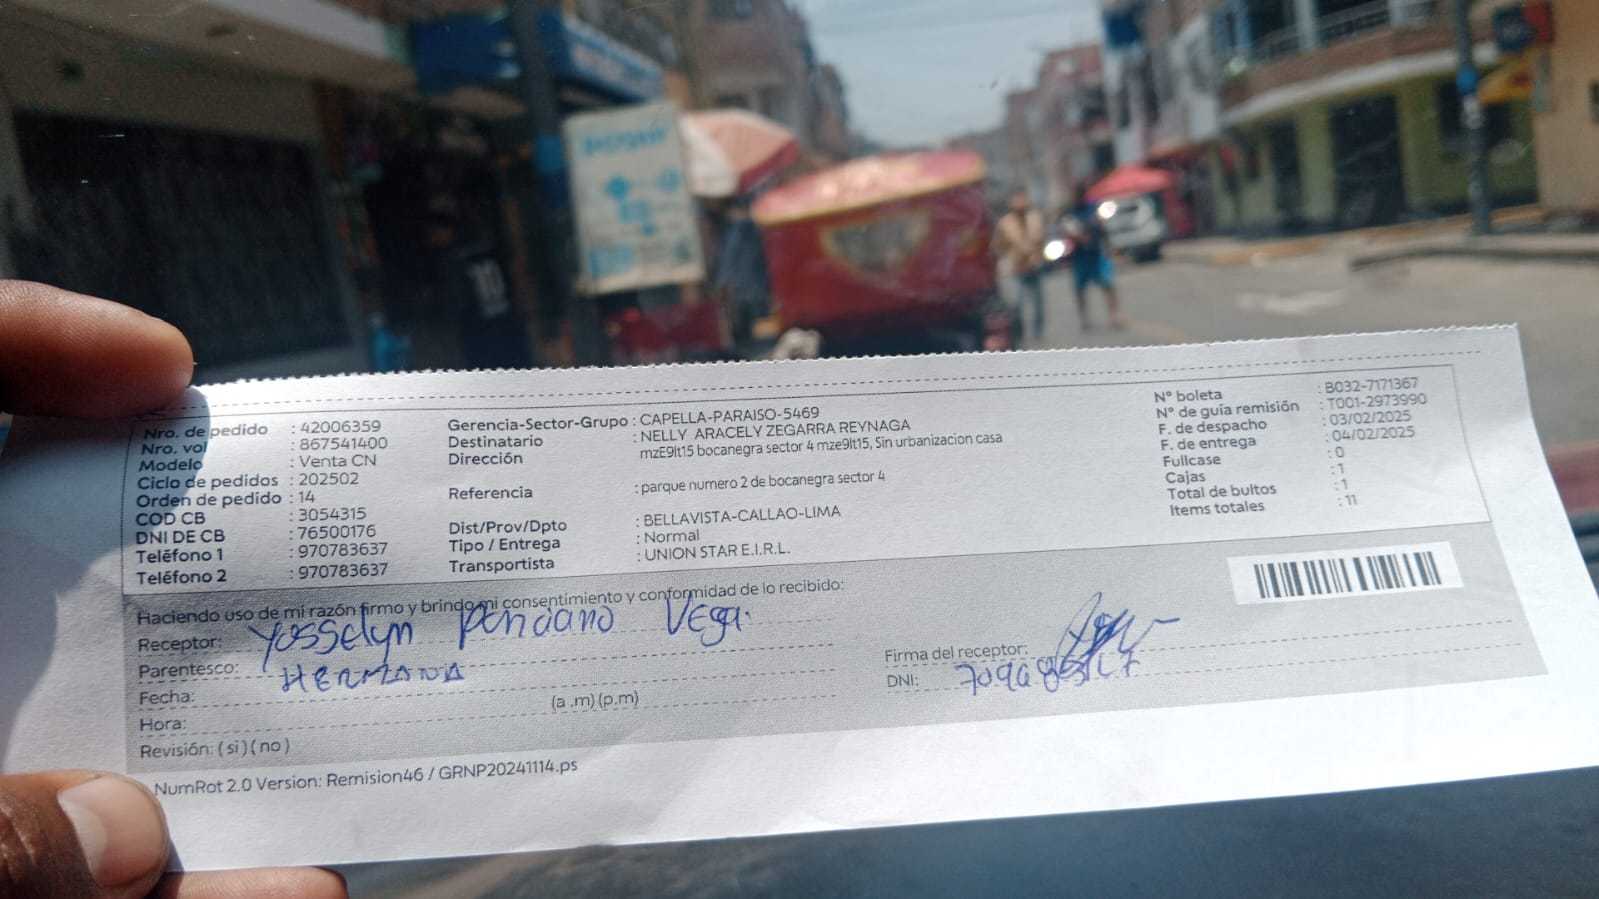 Nro. de pedido : 42006359
Nro. vol : 867541400
Modelo : Venta CN
Ciclo de pedidos : 202502
Orden de pedido : 14
COD CB : 3054315
DNI DE CB : 76500176
Teléfono 1 : 970783637
Teléfono 2 : 970783637
Gerencia-Sector-Grupo : CAPELLA-PARAISO-5469
Destinatario : NELLY ARACELY ZEGARRA REYNAGA
Dirección : mzE9lt15 bocanegra sector 4 mze9lt15, Sin urbanizacion casa
Referencia : parque numero 2 de bocanegra sector 4
Dist/Prov/Dpto : BELLAVISTA-CALLAO-LIMA
Tipo / Entrega : Normal
Transportista : UNION STAR E.I.R.L.
N° boleta : B032-7171367
N° de guía remisión : T001-2973990
F. de despacho : 03/02/2025
F. de entrega : 04/02/2025
Fullcase : 0
Cajas : 1
Total de bultos : 1
Items totales : 11
Haciendo uso de mi razón firmo y brindo mi consentimiento y conformidad de lo recibido:
Receptor: Yosselyn Ponciano Vega.
Parentesco: HERMANA
Fecha:
Hora: (a .m) (p.m)
Revisión: ( si ) ( no )
Firma del receptor:
DNI:
NumRot 2.0 Version: Remision46 / GRNP20241114.ps
10